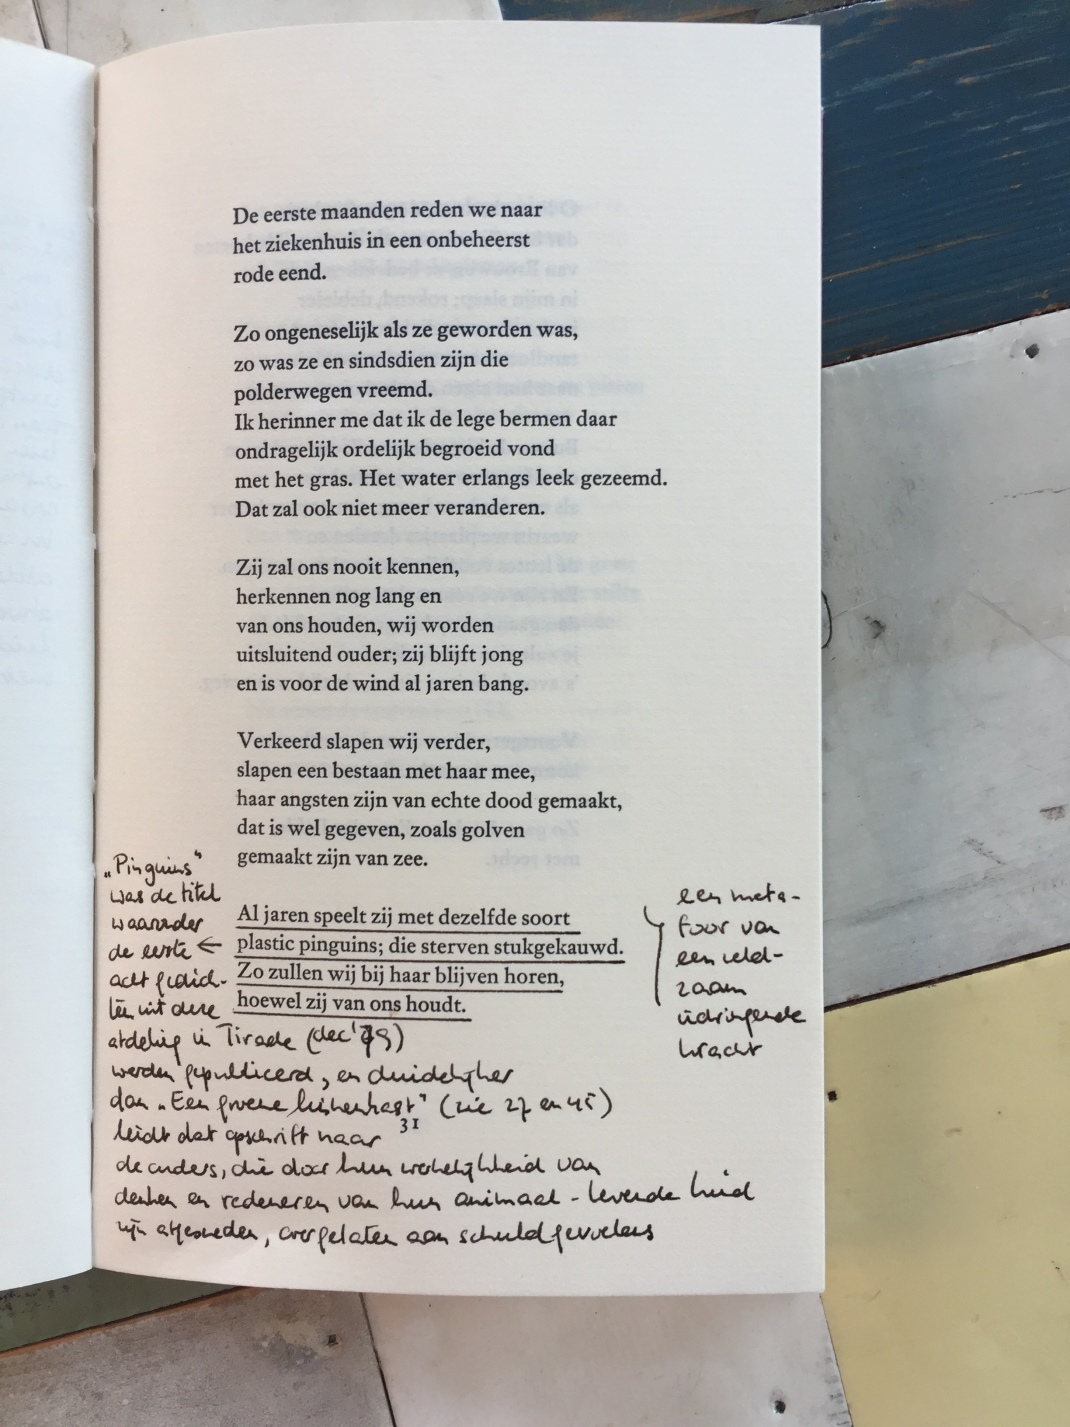 De eerste maanden reden we naar
het ziekenhuis in een onbeheerst
rode eend.
Zo ongeneselijk als ze geworden was,
zo was ze en sindsdien zijn die
polderwegen vreemd.
Ik herinner me dat ik de lege bermen daar
ondragelijk ordelijk begroeid vond
met het gras. Het water erlangs leek gezeemd.
Dat zal ook niet meer veranderen.
Zij zal ons nooit kennen,
herkennen nog lang en
van ons houden, wij worden
uitsluitend ouder; zij blijft jong
en is voor de wind al jaren bang.
Verkeerd slapen wij verder,
slapen een bestaan met haar mee,
haar angsten zijn van echte dood gemaakt,
dat is wel gegeven, zoals golven
gemaakt zijn van zee.
Al jaren speelt zij met dezelfde soort
plastic pinguins; die sterven stukgekauwd.
Zo zullen wij bij haar blijven horen,
hoewel zij van ons houdt.
een meta-
foor van
een zeld-
zaam
indringende
kracht
„Pinguins"
was de titel
waaronder
de eerste
acht gedich-
ten uit deze
afdeling in Tirade (dec'79)
werden gepubliceerd, en duidelijker
dan „Een groene linnenkast" (zie 27 en 45)
leidt dat opschrift naar
31
de ouders, die door hun werkelijkheid van
denken en redeneren van hun animaal-levende kind
zijn afgesneden, overgelaten aan schuldgevoelens